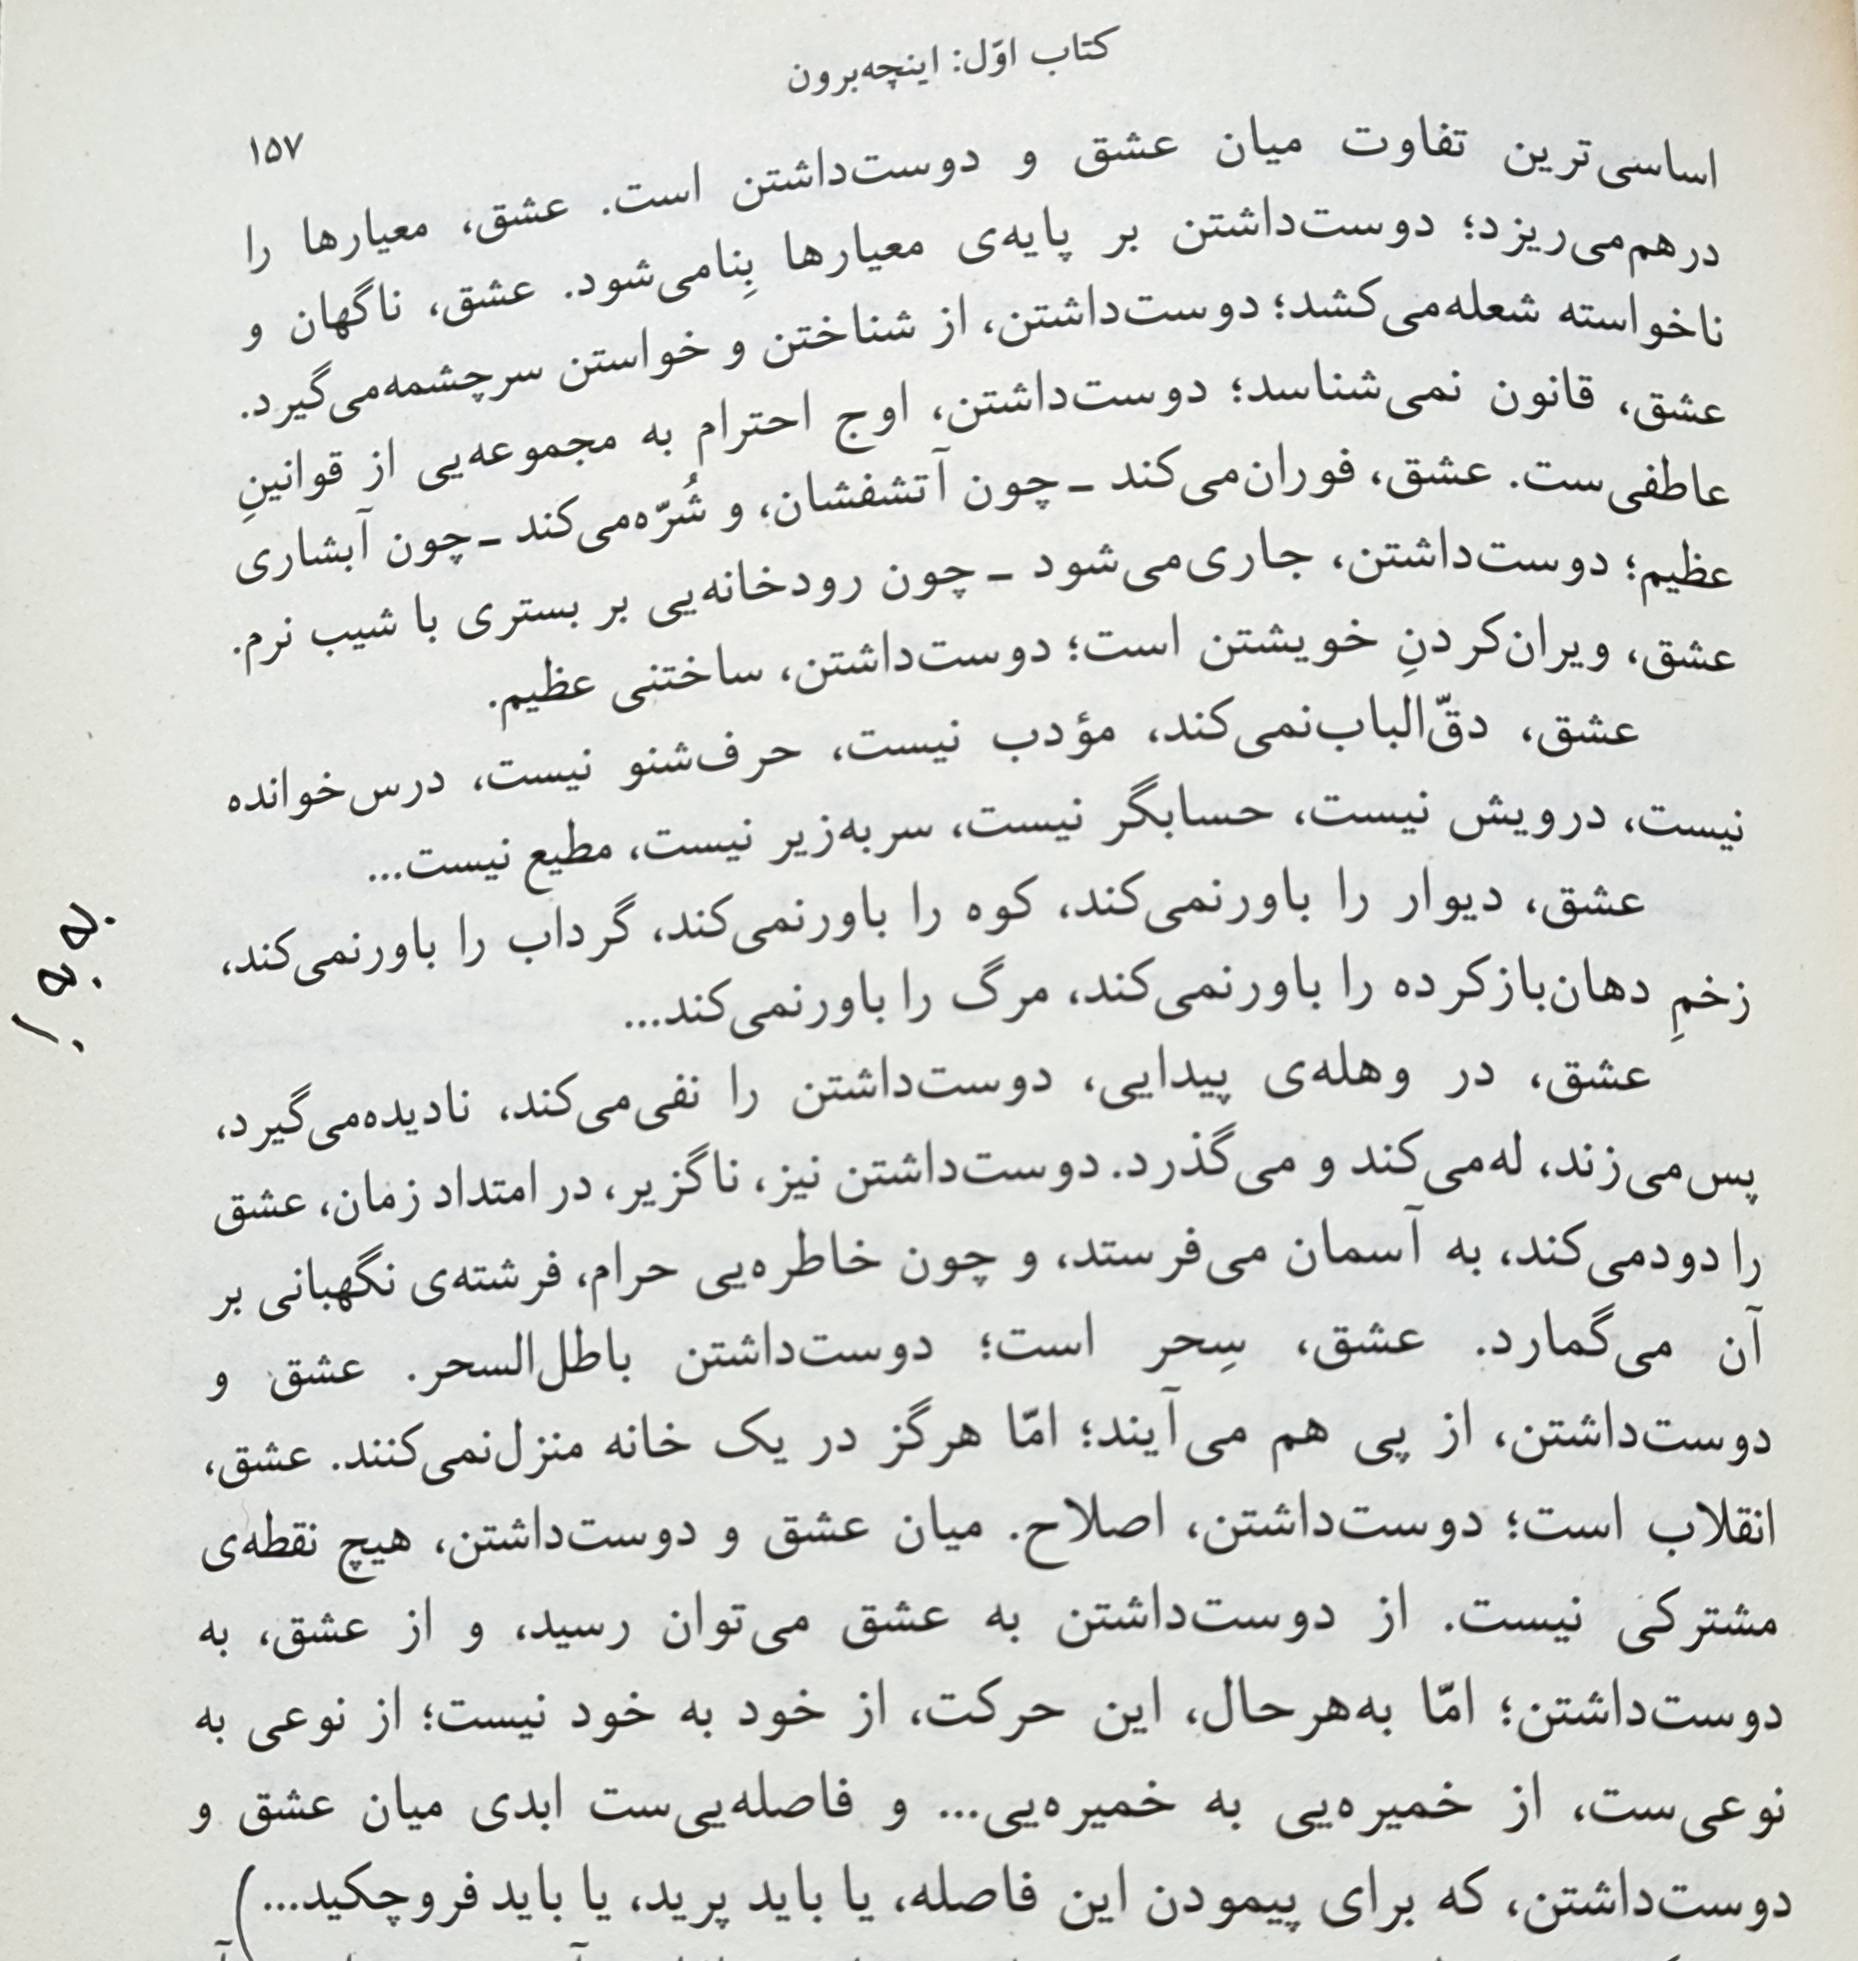 کتاب اوّل: اینچه‌برون
۱۵۷
اساسی‌ترین تفاوت میان عشق و دوست‌داشتن است. عشق، معیارها را
درهم‌می‌ریزد؛ دوست‌داشتن بر پایه‌ی معیارها بِنامی‌شود. عشق، ناگهان و
ناخواسته شعله‌می‌کشد؛ دوست‌داشتن، از شناختن و خواستن سرچشمه‌می‌گیرد.
عشق، قانون نمی‌شناسد؛ دوست‌داشتن، اوج احترام به مجموعه‌یی از قوانینِ
عاطفی‌ست. عشق، فوران‌می‌کند ـ چون آتشفشان، و شُرّه‌می‌کند ـ چون آبشاری
عظیم؛ دوست‌داشتن، جاری‌می‌شود ـ چون رودخانه‌یی بر بستری با شیب نرم.
عشق، ویران‌کردنِ خویشتن است؛ دوست‌داشتن، ساختنی عظیم.
عشق، دقّ‌الباب‌نمی‌کند، مؤدب نیست، حرف‌شنو نیست، درس‌خوانده
نیست، درویش نیست، حسابگر نیست، سربه‌زیر نیست، مطیع نیست...
عشق، دیوار را باورنمی‌کند، کوه را باورنمی‌کند، گرداب را باورنمی‌کند،
زخمِ دهان‌بازکرده را باورنمی‌کند، مرگ را باورنمی‌کند...
عشق، در وهله‌ی پیدایی، دوست‌داشتن را نفی‌می‌کند، نادیده‌می‌گیرد،
پس‌می‌زند، له‌می‌کند و می‌گذرد. دوست‌داشتن نیز، ناگزیر، در امتداد زمان، عشق
را دودمی‌کند، به آسمان می‌فرستد، و چون خاطره‌یی حرام، فرشته‌ی نگهبانی بر
آن می‌گمارد. عشق، سِحر است؛ دوست‌داشتن باطل‌السحر. عشق و
دوست‌داشتن، از پی هم می‌آیند؛ امّا هرگز در یک خانه منزل‌نمی‌کنند. عشق،
انقلاب است؛ دوست‌داشتن، اصلاح. میان عشق و دوست‌داشتن، هیچ نقطه‌ی
مشترکی نیست. از دوست‌داشتن به عشق می‌توان رسید، و از عشق، به
دوست‌داشتن؛ امّا به‌هرحال، این حرکت، از خود به خود نیست؛ از نوعی به
نوعی‌ست، از خمیره‌یی به خمیره‌یی... و فاصله‌یی‌ست ابدی میان عشق و
دوست‌داشتن، که برای پیمودن این فاصله، یا باید پرید، یا باید فروچکید...